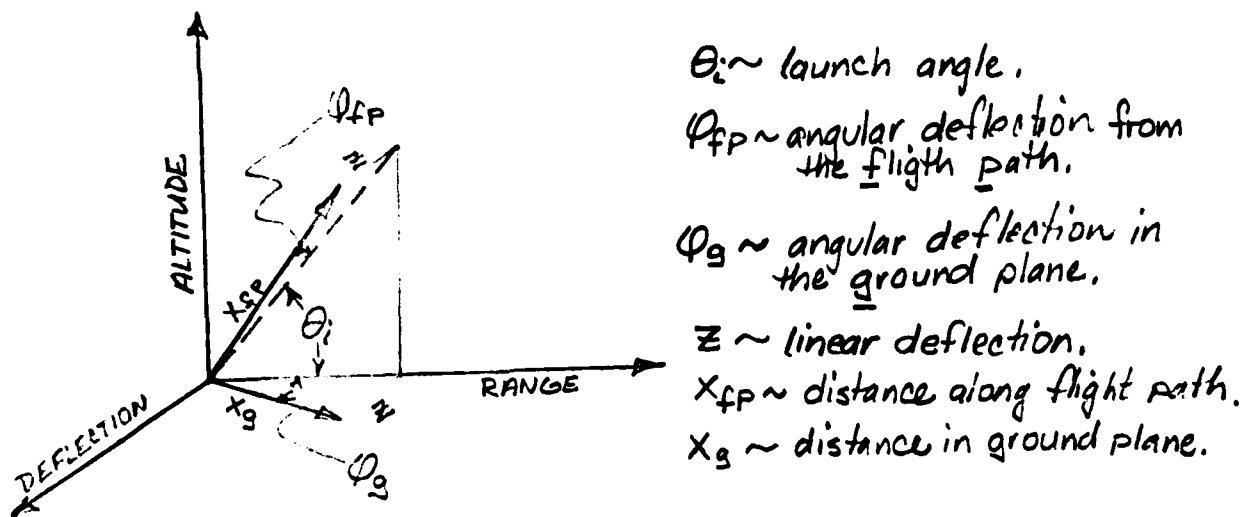 ALTITUDE
φfp
z
xfp
θi
RANGE
xg
z
DEFLECTION
φg
θi ~ launch angle.
φfp ~ angular deflection from
the fligth path.
φg ~ angular deflection in
the ground plane.
z ~ linear deflection.
xfp ~ distance along flight path.
xg ~ distance in ground plane.